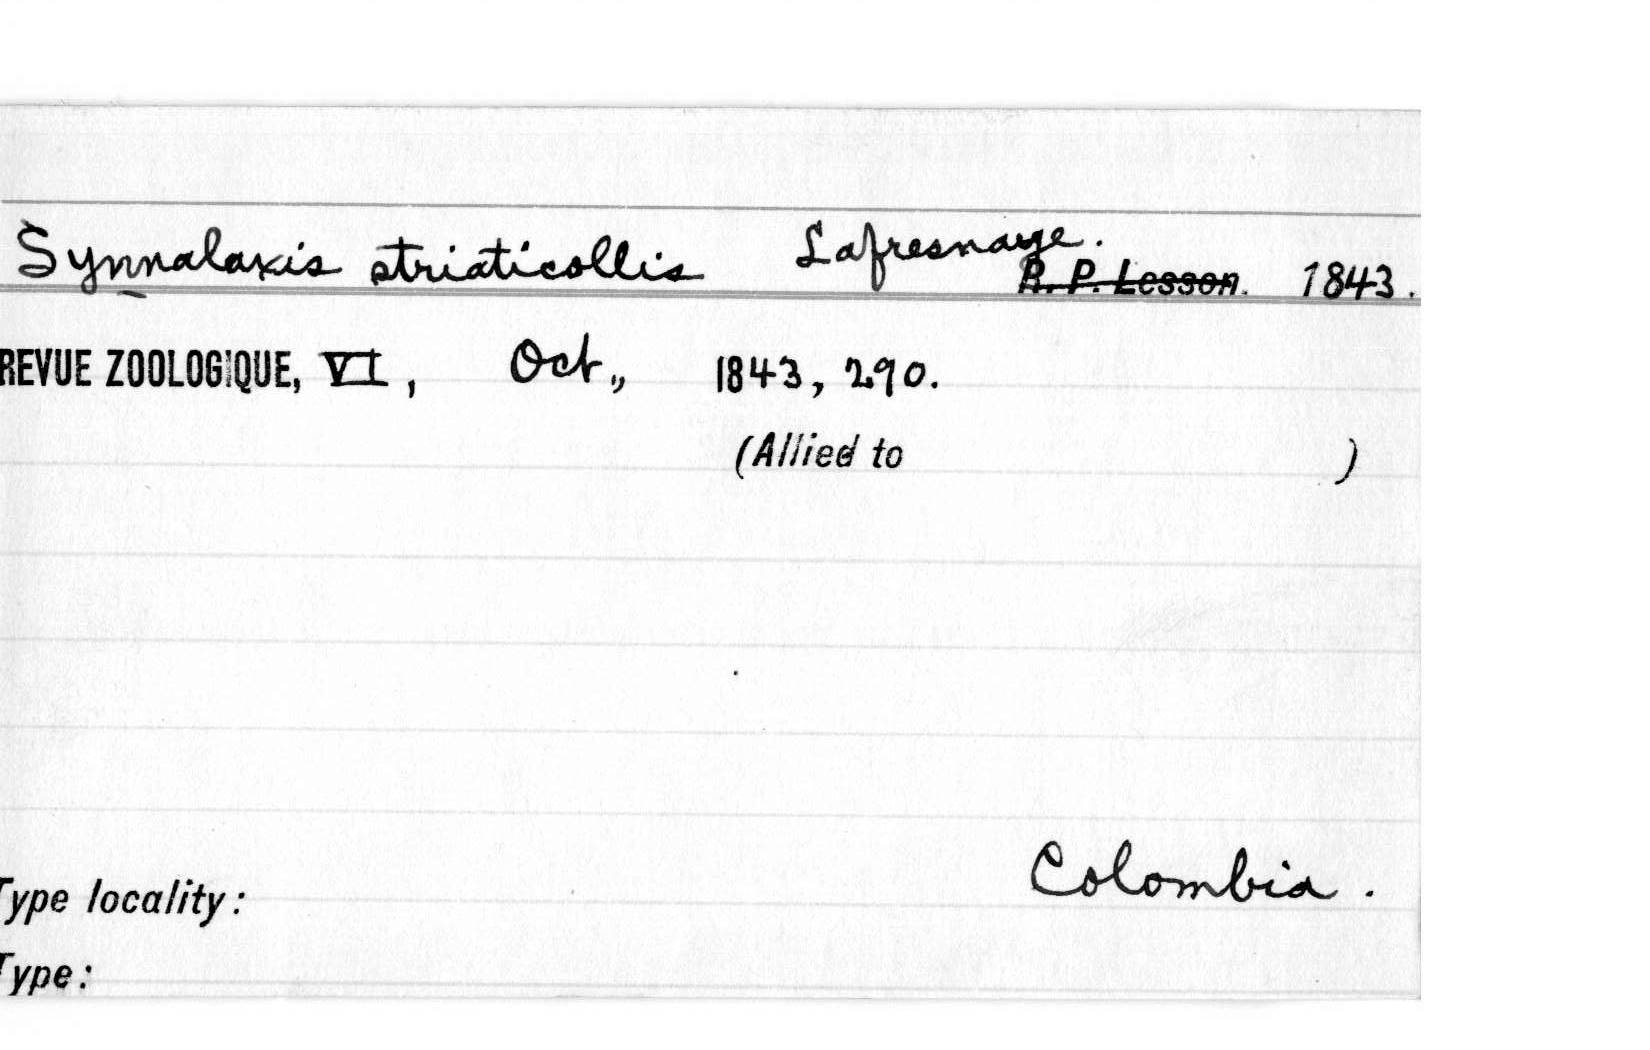 Synnalaxis striaticollis Lafresnaye.
R. P. Lesson. 1843.
REVUE ZOOLOGIQUE, VI, Oct., 1843, 290.
(Allied to )
Colombia.
Type locality:
Type: